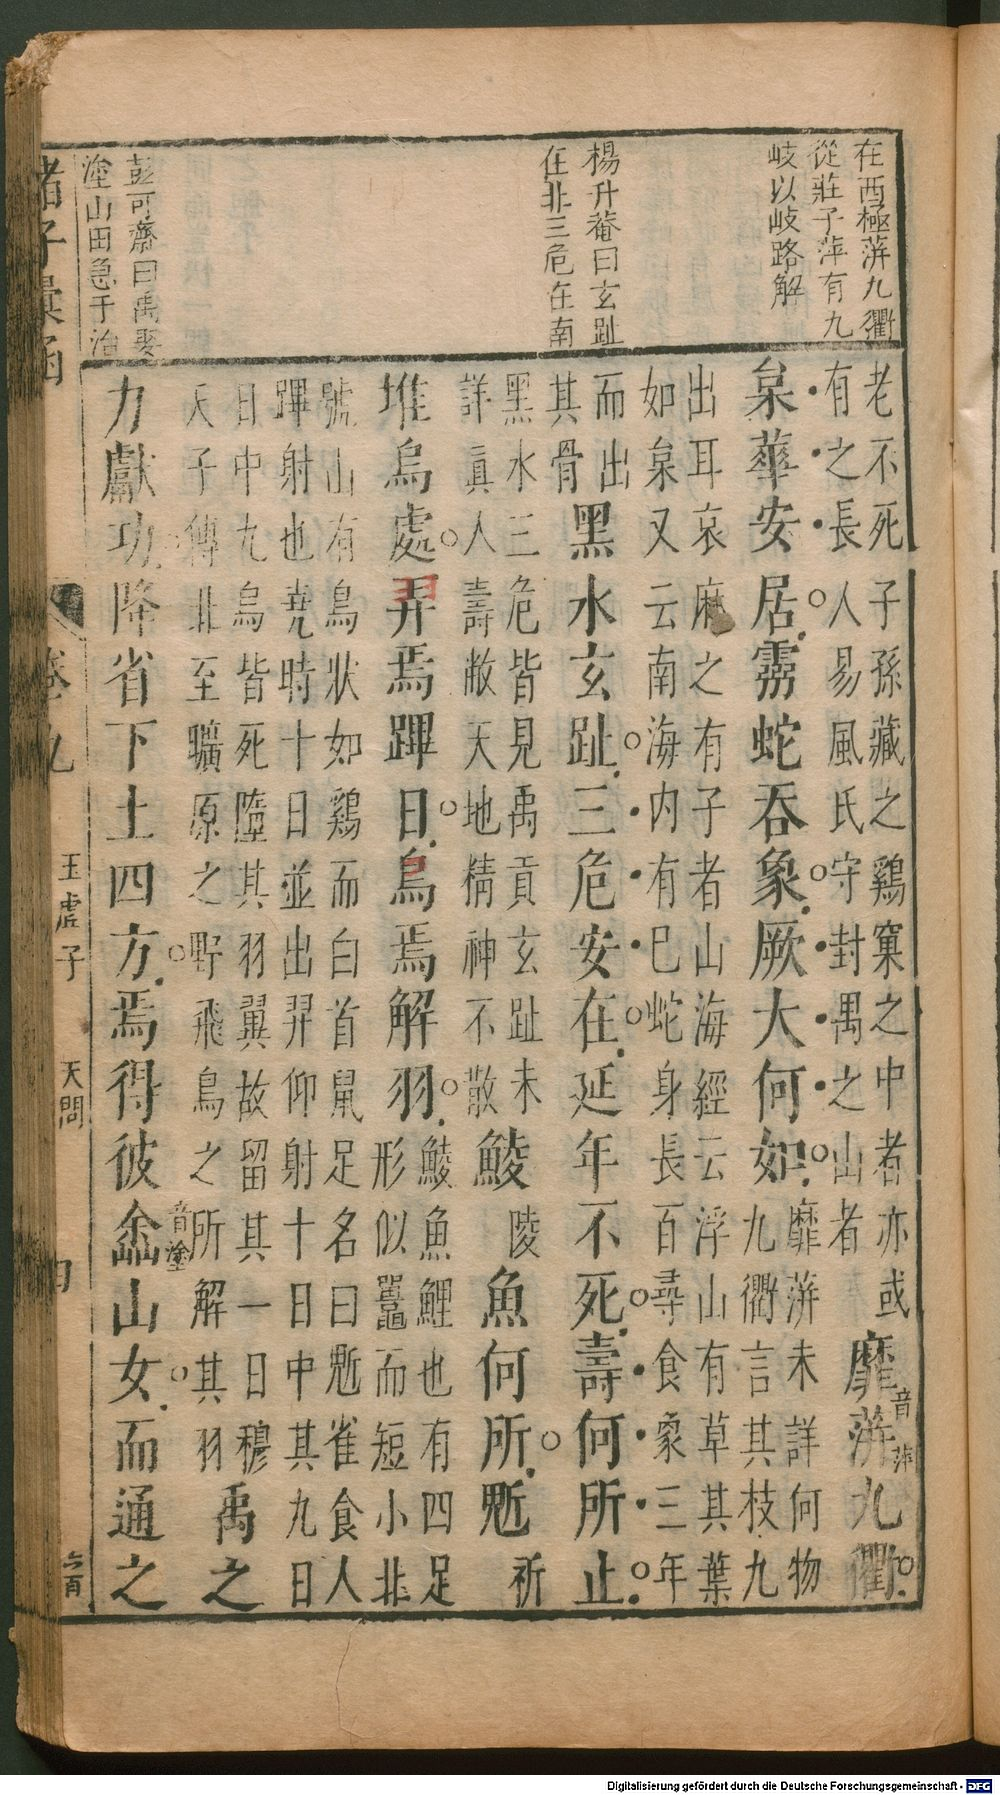 在西極蓱九衢
從莊子萍有九
岐以岐路解
楊升菴曰玄趾
在非三危在南
彭可齋曰禹娶
塗山田急于治
老不死子孫藏之鷄窠之中者亦或
有之長人易風氏守封禺之山者
靡音蓱萍九衢
枲華安居靈蛇吞象厥大何如
靡蓱未詳何物
九衢言其枝九
出耳哀麻之有子者山海經云浮山有草其葉
如枲又云南海内有巴蛇身長百尋食象三年
而出
其骨
黑水玄趾三危安在延年不死壽何所止
黑水三危皆見禹貢玄趾未
詳真人壽敝天地精神不散
鯪陵魚何所鬿祈
堆焉處羿焉彃日烏焉解羽
鯪魚鯉也有四足
形似鼉而短小北
號山有鳥狀如鷄而白首鼠足名曰鬿雀食人
彃射也堯時十日並出羿仰射十日中其九日
日中九烏皆死墮其羽翼故留其一日穆
天子傳北至曠原之野飛鳥之所解其羽
禹之
力獻功降省下土四方焉得彼嵞音塗山女而通之
諸子彙函
卷九
玉虛子
天問
六百
Digitalisierung gefördert durch die Deutsche Forschungsgemeinschaft - DFG